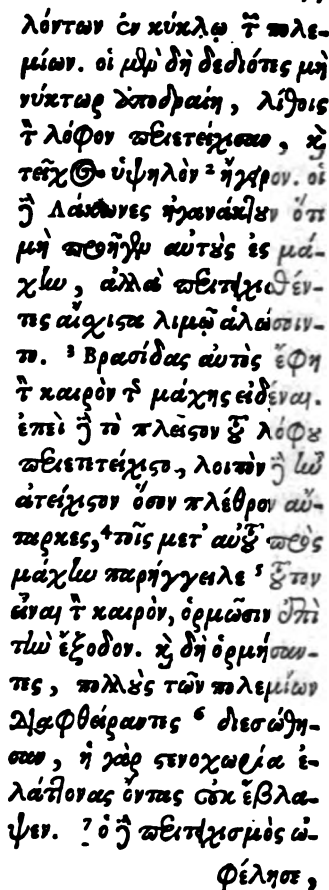 λόντων ἐν κύκλῳ τῶν πολε-
μίων. οἱ μὲν δὴ δεδιότες μὴ
νύκτωρ ἀποδραίη, λίθοις
τὸν λόφον περιετείχισαν, καὶ
τεῖχος ὑψηλὸν ² ἤγειρον. οἱ
δὲ Λάκωνες ἠγανάκτουν ὅτι
μὴ προῆγεν αὐτοὺς ἐς μά-
χην, ἀλλὰ περιτειχισθέν-
τες αἴχιστα λιμῷ ἁλώσοιν-
το. ³ Βρασίδας αὐτὸς ἔφη
τὸν καιρὸν τῆς μάχης εἰδέναι.
ἐπεὶ δὲ τὸ πλεῖστον τοῦ λόφου
περιετετείχιστο, λοιπὸν δὲ ἦν
ἀτείχιστον ὅσον πλέθρον αὔ-
ταρκες, ⁴ τοῖς μετ' αὐτοῦ πρὸς
μάχην παρήγγειλε ⁵ τοῦτον
εἶναι τὸν καιρὸν, ὁρμῶσιν ἐπὶ
τὴν ἔξοδον. καὶ δὴ ὁρμήσαν-
τες, πολλοὺς τῶν πολεμίων
διαφθείραντες ⁶ διεσώθη-
σαν, ἡ γὰρ στενοχωρία ἐ-
λάττονας ὄντας οὐκ ἔβλα-
ψεν. ⁷ ὁ δὲ περιτειχισμὸς ὠ-
φέλησε,